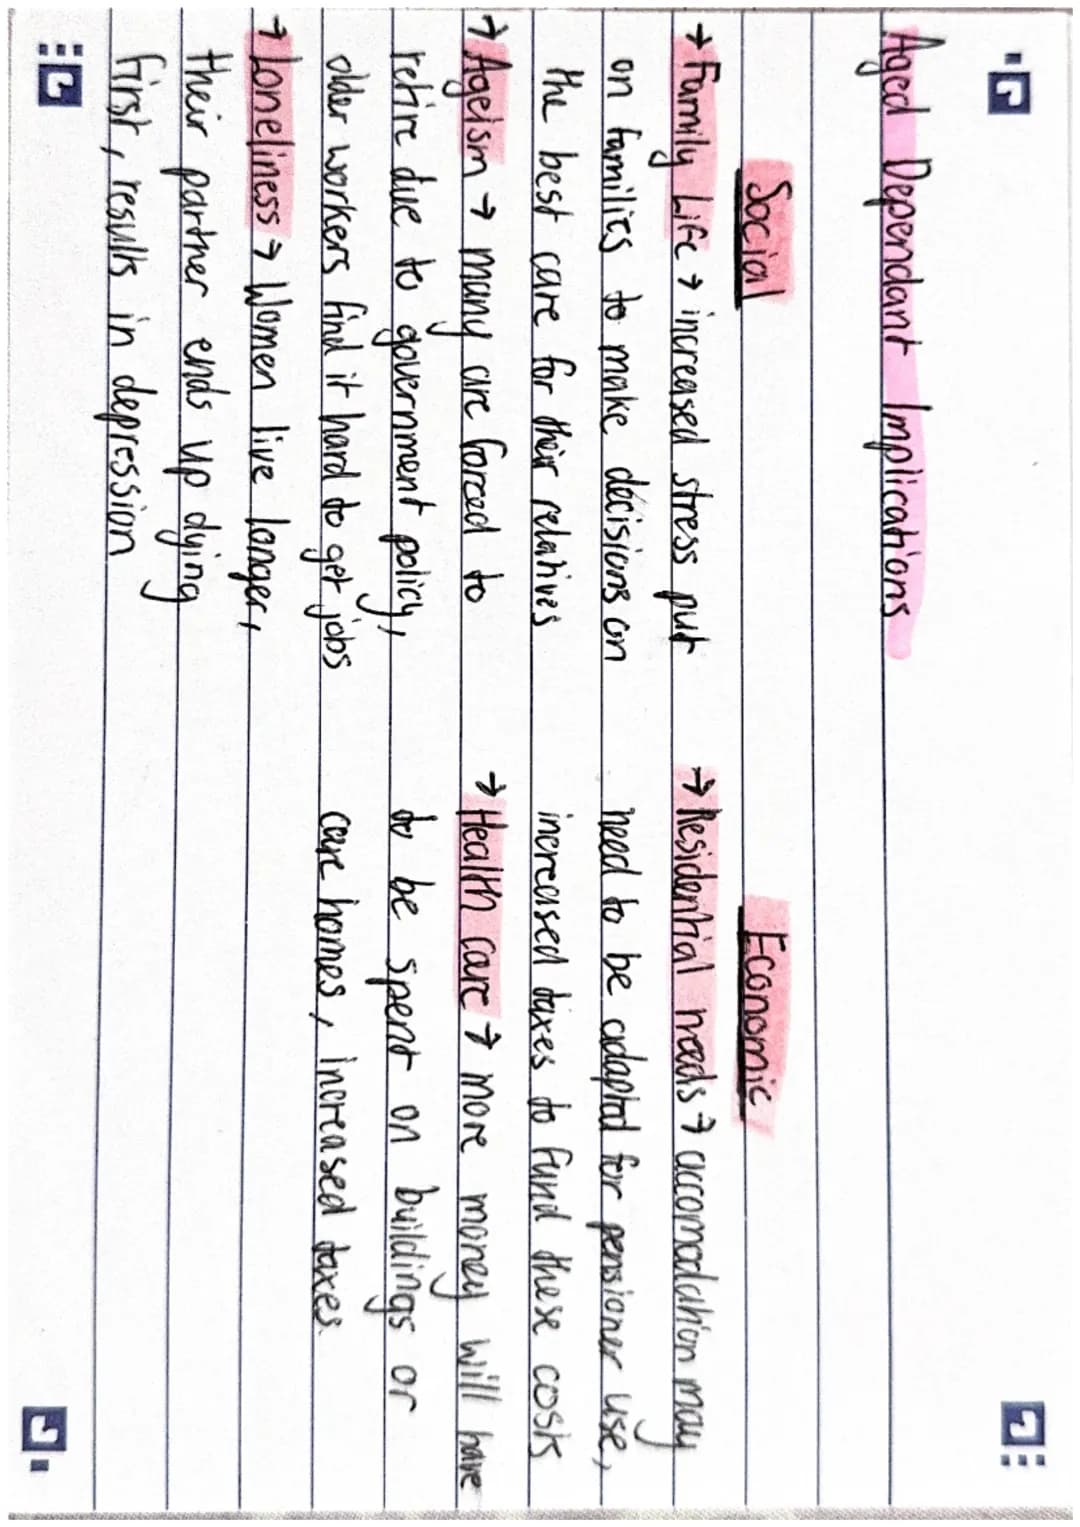 Aged Dependant Implications
Social
→ Family Life → increased stress put
on families to make decisions on
the best care for their relatives
→ Ageism → many are forced to
retire due to government policy,
older workers find it hard to get jobs
→ Loneliness → Women live longer,
their partner ends up dying
first, results in depression
Economic
→ Residential needs → accomodation may
need to be adapted for pensioner use,
increased taxes to fund these costs
→ Health care → more money will have
to be spent on buildings or
care homes, increased taxes.